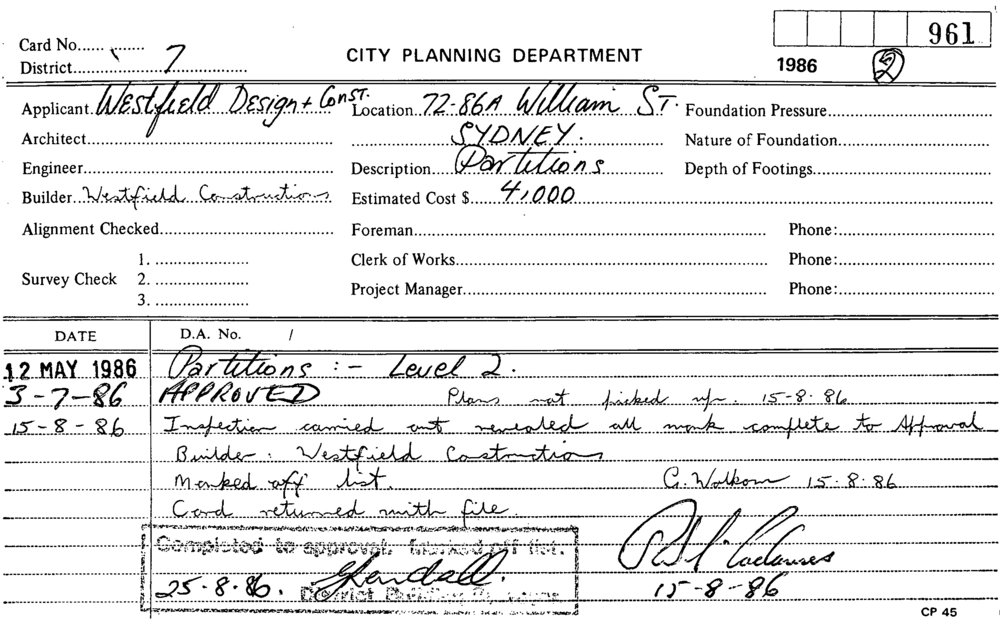 961
Card No...... ........
District.......7.......
CITY PLANNING DEPARTMENT
1986 2
Applicant. Westfield Design + Const. Location. 72-86A William ST. Foundation Pressure
Architect SYDNEY. Nature of Foundation
Engineer Description Partitions Depth of Footings
Builder Westfield Constructions Estimated Cost $ 4,000
Alignment Checked Foreman Phone:
1. Clerk of Works Phone:
Survey Check 2.
Project Manager Phone:
3.
DATE D.A. No. /
12 MAY 1986 Partitions :- Level 2.
3-7-86 APPROVED Plans not picked up. 15-8-86
15-8-86 Inspection carried out revealed all work complete to Approval
Builder: Westfield Constructions
Marked off list. G. Walkom 15.8.86
Card returned with file.
Completed to approval: Marked off list.
25-8-86.
District Building
15-8-86
CP 45